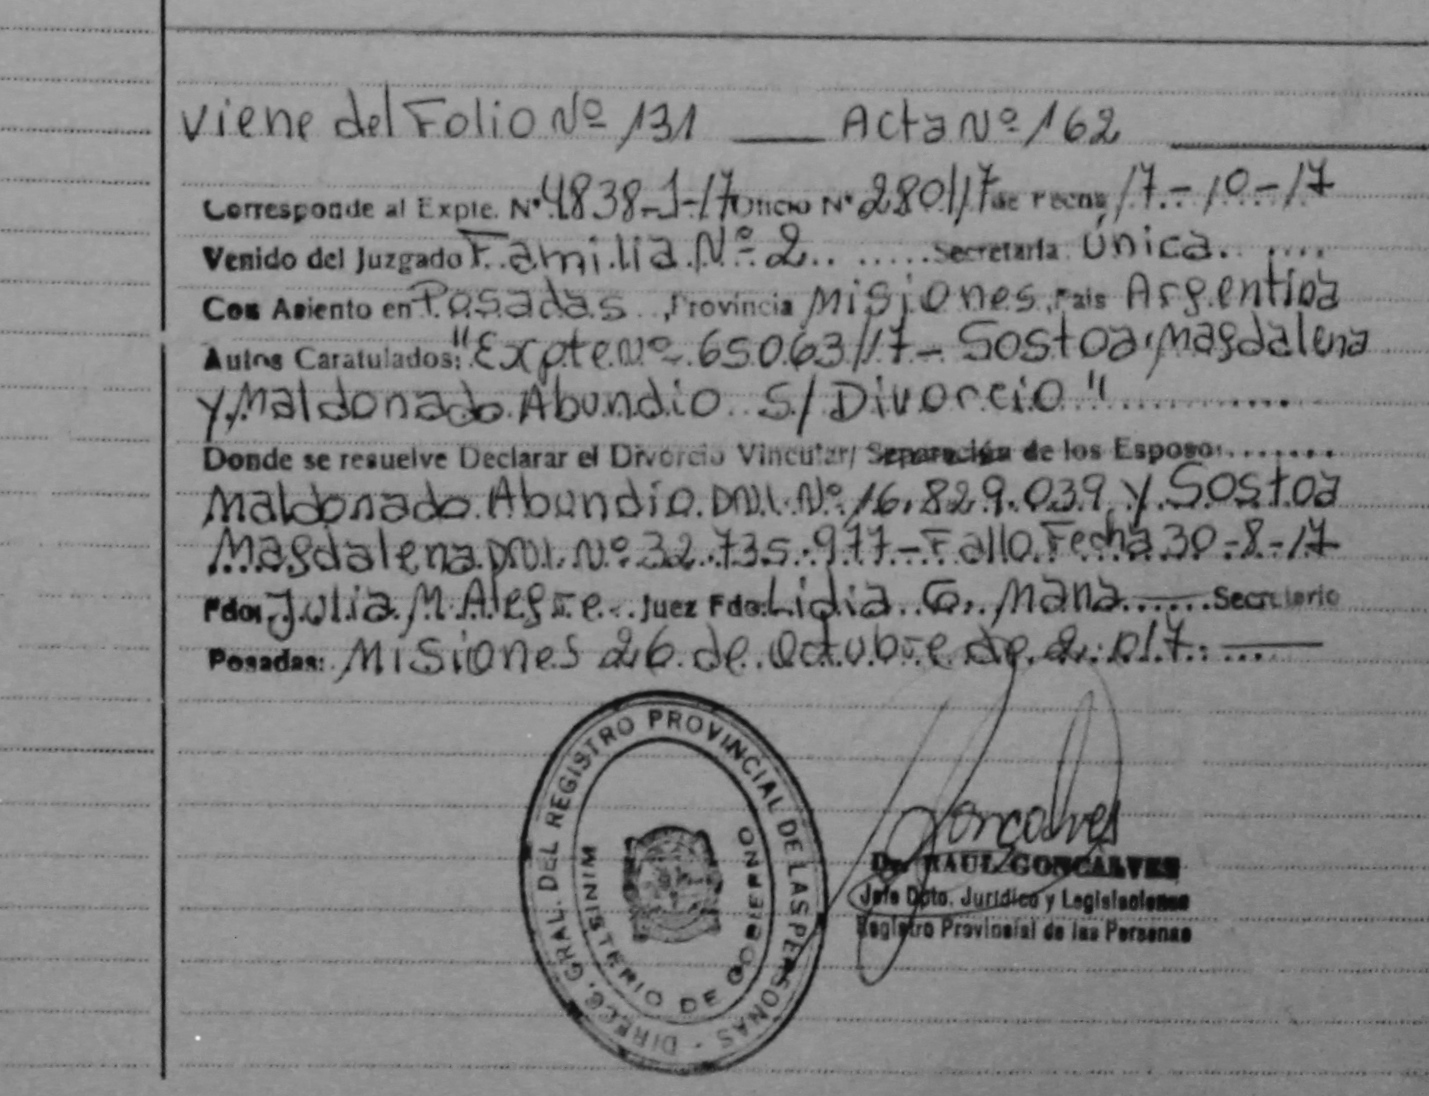 Viene del Folio Nº 131 ___ Acta Nº 162 ___
Corresponde al Expte. Nº 4838-J-17 Oficio Nº 280/17 de Fecha 17-10-17
Venido del Juzgado Familia Nº 2.. ......Secretaría Única. ....
Con Asiento en Posadas ., Provincia Misiones, País Argentina
Autos Caratulados: "Expte Nº 65063/17 - Sostoa Magdalena
y Maldonado Abundio S/ Divorcio"............
Donde se resuelve Declarar el Divorcio Vincular/ Separación de los Esposo:.......
Maldonado Abundio DNI. Nº 16.829.039 y Sostoa
Magdalena DNI. Nº 32.735.977 - Fallo Fecha 30-8-17
Fdo: Julia M. Alegre.. Juez Fdo: Lidia G. Mana ......Secretario
Posadas: Misiones 26 de Octubre de 2.017. ___
DIREC. GRAL. DEL REGISTRO PROVINCIAL DE LAS PERSONAS -
MINISTERIO DE GOBIERNO
Goncalves
Dr. RAUL GONCALVES
Jefe Dpto. Jurídico y Legislaciones
Registro Provincial de las Personas